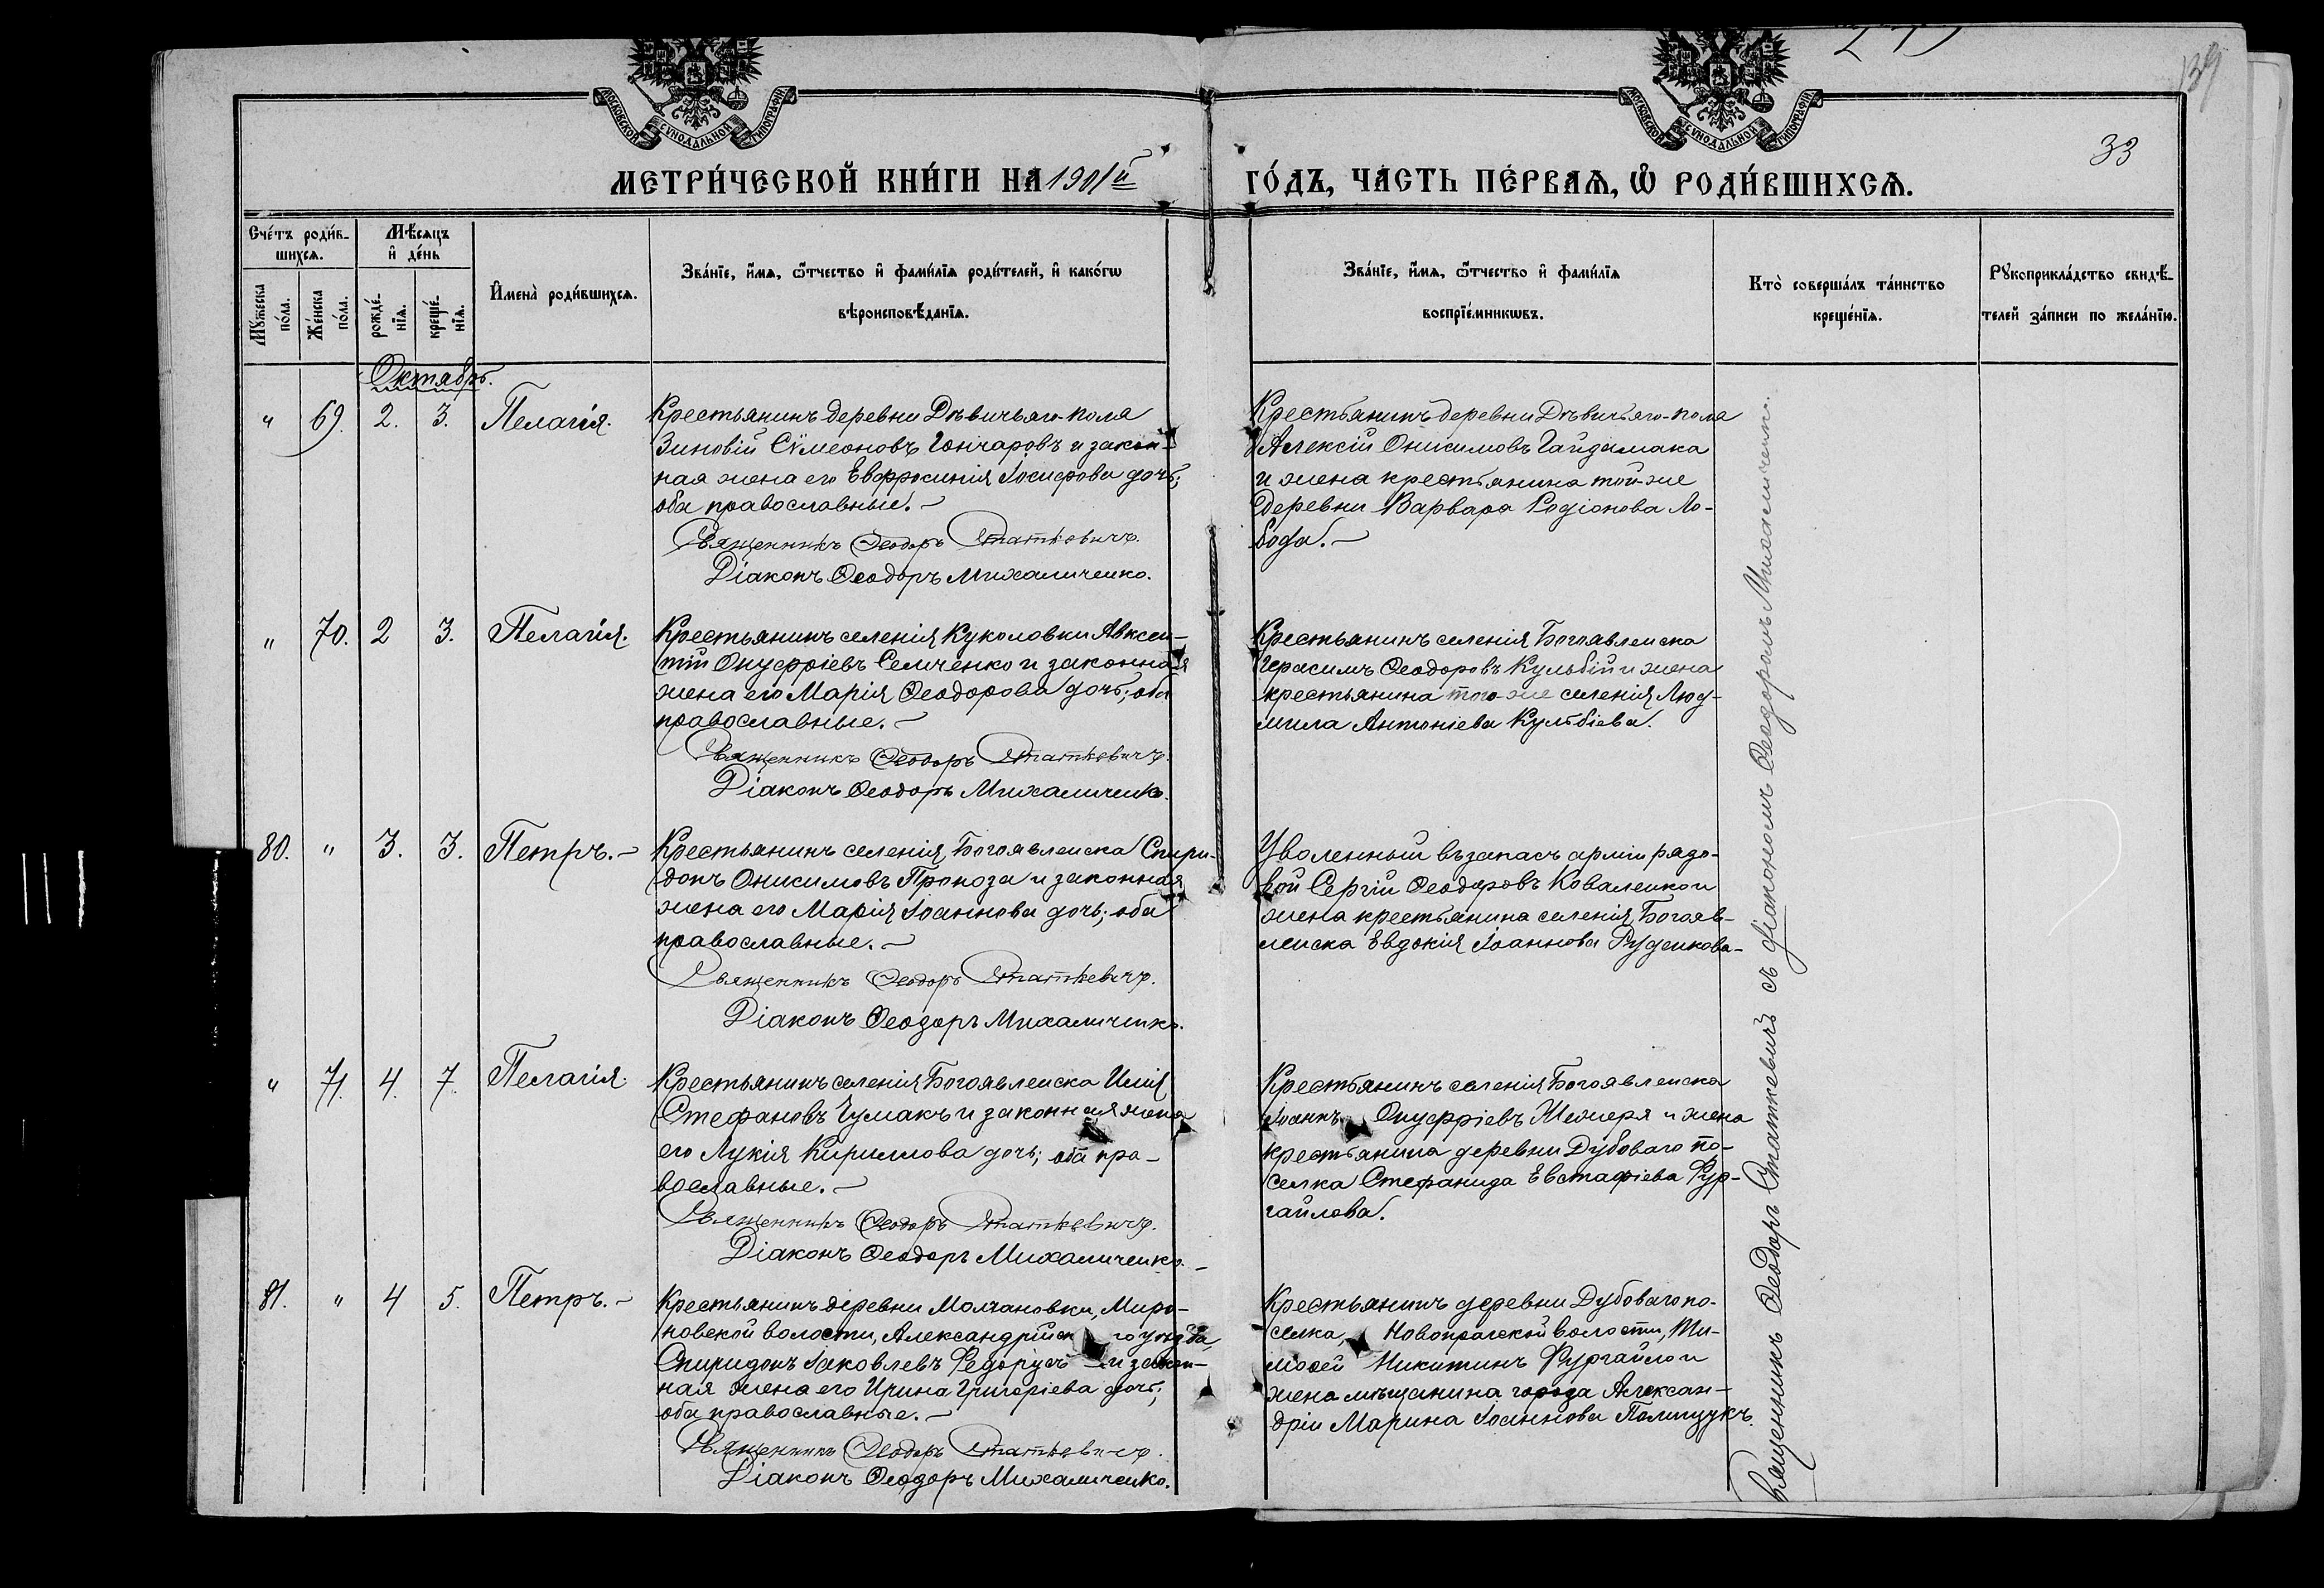 139
33
МОСКОВСКОЙ СѴНОДАЛЬНОЙ ТИПОГРАФІИ
МОСКОВСКОЙ СѴНОДАЛЬНОЙ ТИПОГРАФІИ
МЕТРИ́ЧЕСКОЙ КНИ́ГИ НА 1901й ГО́ДЪ, ЧА́СТЬ ПЕ́РВАѦ, Ѿ РОДИ́ВШИХСѦ.
Сче́тъ роди́в-
шихсѧ.
Мꙋ́жеска по́ла.
Же́нска по́ла.
Мѣ́сѧцъ
и҆ де́нь
рожде́-
нїѧ.
креще́-
нїѧ.
И҆мена̀ роди́вшихсѧ.
Зва́нїе, и҆́мѧ, ѻ҆́тчество и҆ фами́лїѧ роди́телей, и҆ како́гѡ
вѣроисповѣ́данїѧ.
Зва́нїе, и҆́мѧ, ѻ҆́тчество и҆ фами́лїѧ
воспрїе́мникѡвъ.
Кто̀ соверша́лъ та́инство
креще́нїѧ.
Рꙋкоприкла́дство свидѣ́-
телей за́писи по жела́нїю.
Октябрь.
" 69. 2. 3. Пелагія.
Крестьянинъ деревни Дѣвичьяго-поля
Зиновій Сѵмеоновъ Гончаровъ и закон-
ная жена его Евфросинія Іосифова дочь;
оба православные.-
Священникъ Ѳеодоръ Статкевичъ.
Діаконъ Ѳеодоръ Михаличенко.
Крестьянинъ деревни Дѣвичьяго-поля
Алексій Онисимовъ Гайдамака
и жена крестьянина той-же
деревни Варвара Родіонова Ло-
бода.-
" 70. 2 3. Пелагія.
Крестьянинъ селенія Куколовки Авксен-
тій Онуфріевъ Семченко и законная
жена его Марія Ѳеодорова дочь; оба
православные.-
Священникъ Ѳеодоръ Статкевичъ.
Діаконъ Ѳеодоръ Михаличенко.
Крестьянинъ селенія Богоявленска
Герасимъ Ѳеодоровъ Кульбій и жена
крестьянина того-же селенія Люд-
мила Антоніева Кульбіева.
80. " 3. 3. Петръ.-
Крестьянинъ селенія Богоявленска Спири-
донъ Онисимовъ Проноза и законная
жена его Марія Іоаннова дочь; оба
православные.-
Священникъ Ѳеодоръ Статкевичъ.
Діаконъ Ѳеодоръ Михаличенко.
Уволенный въ запасъ арміи рядо-
вой Сергій Ѳеодоровъ Коваленко и
жена крестьянина селенія Богояв-
ленска Евдокія Іоаннова Руденкова-
" 71. 4. 7. Пелагія.
Крестьянинъ селенія Богоявленска Илія
Стефановъ Чумакъ и законная жена
его Лукія Кириллова дочь; оба пра-
вославные.-
Священникъ Ѳеодоръ Статкевичъ.
Діаконъ Ѳеодоръ Михаличенко.-
Крестьянинъ селенія Богоявленска
Іоаннъ Онуфріевъ и жена
крестьянина деревни Дубоваго по-
селка Стефанида Евстафіева Фур-
гайлова.
81. " 4 5. Петръ.-
Крестьянинъ деревни Молчановки, Миро-
новской волости, Александрійск го уѣзда,
Спиридонъ Іаковлевъ Федорусъ и закон-
ная жена его Ирина Григоріева дочь;
оба православные.-
Священникъ Ѳеодоръ Статкевичъ.
Діаконъ Ѳеодоръ Михаличенко.
Крестьянинъ деревни Дубоваго по-
селка, Новопражской волости, Ти-
моѳей Никитинъ Фургайло и
жена мѣщанина города Алексан-
дріи Марина Іоаннова Полищукъ.
Священникъ Ѳеодоръ Статкевичъ съ діакономъ Ѳеодоромъ Михаличенко.